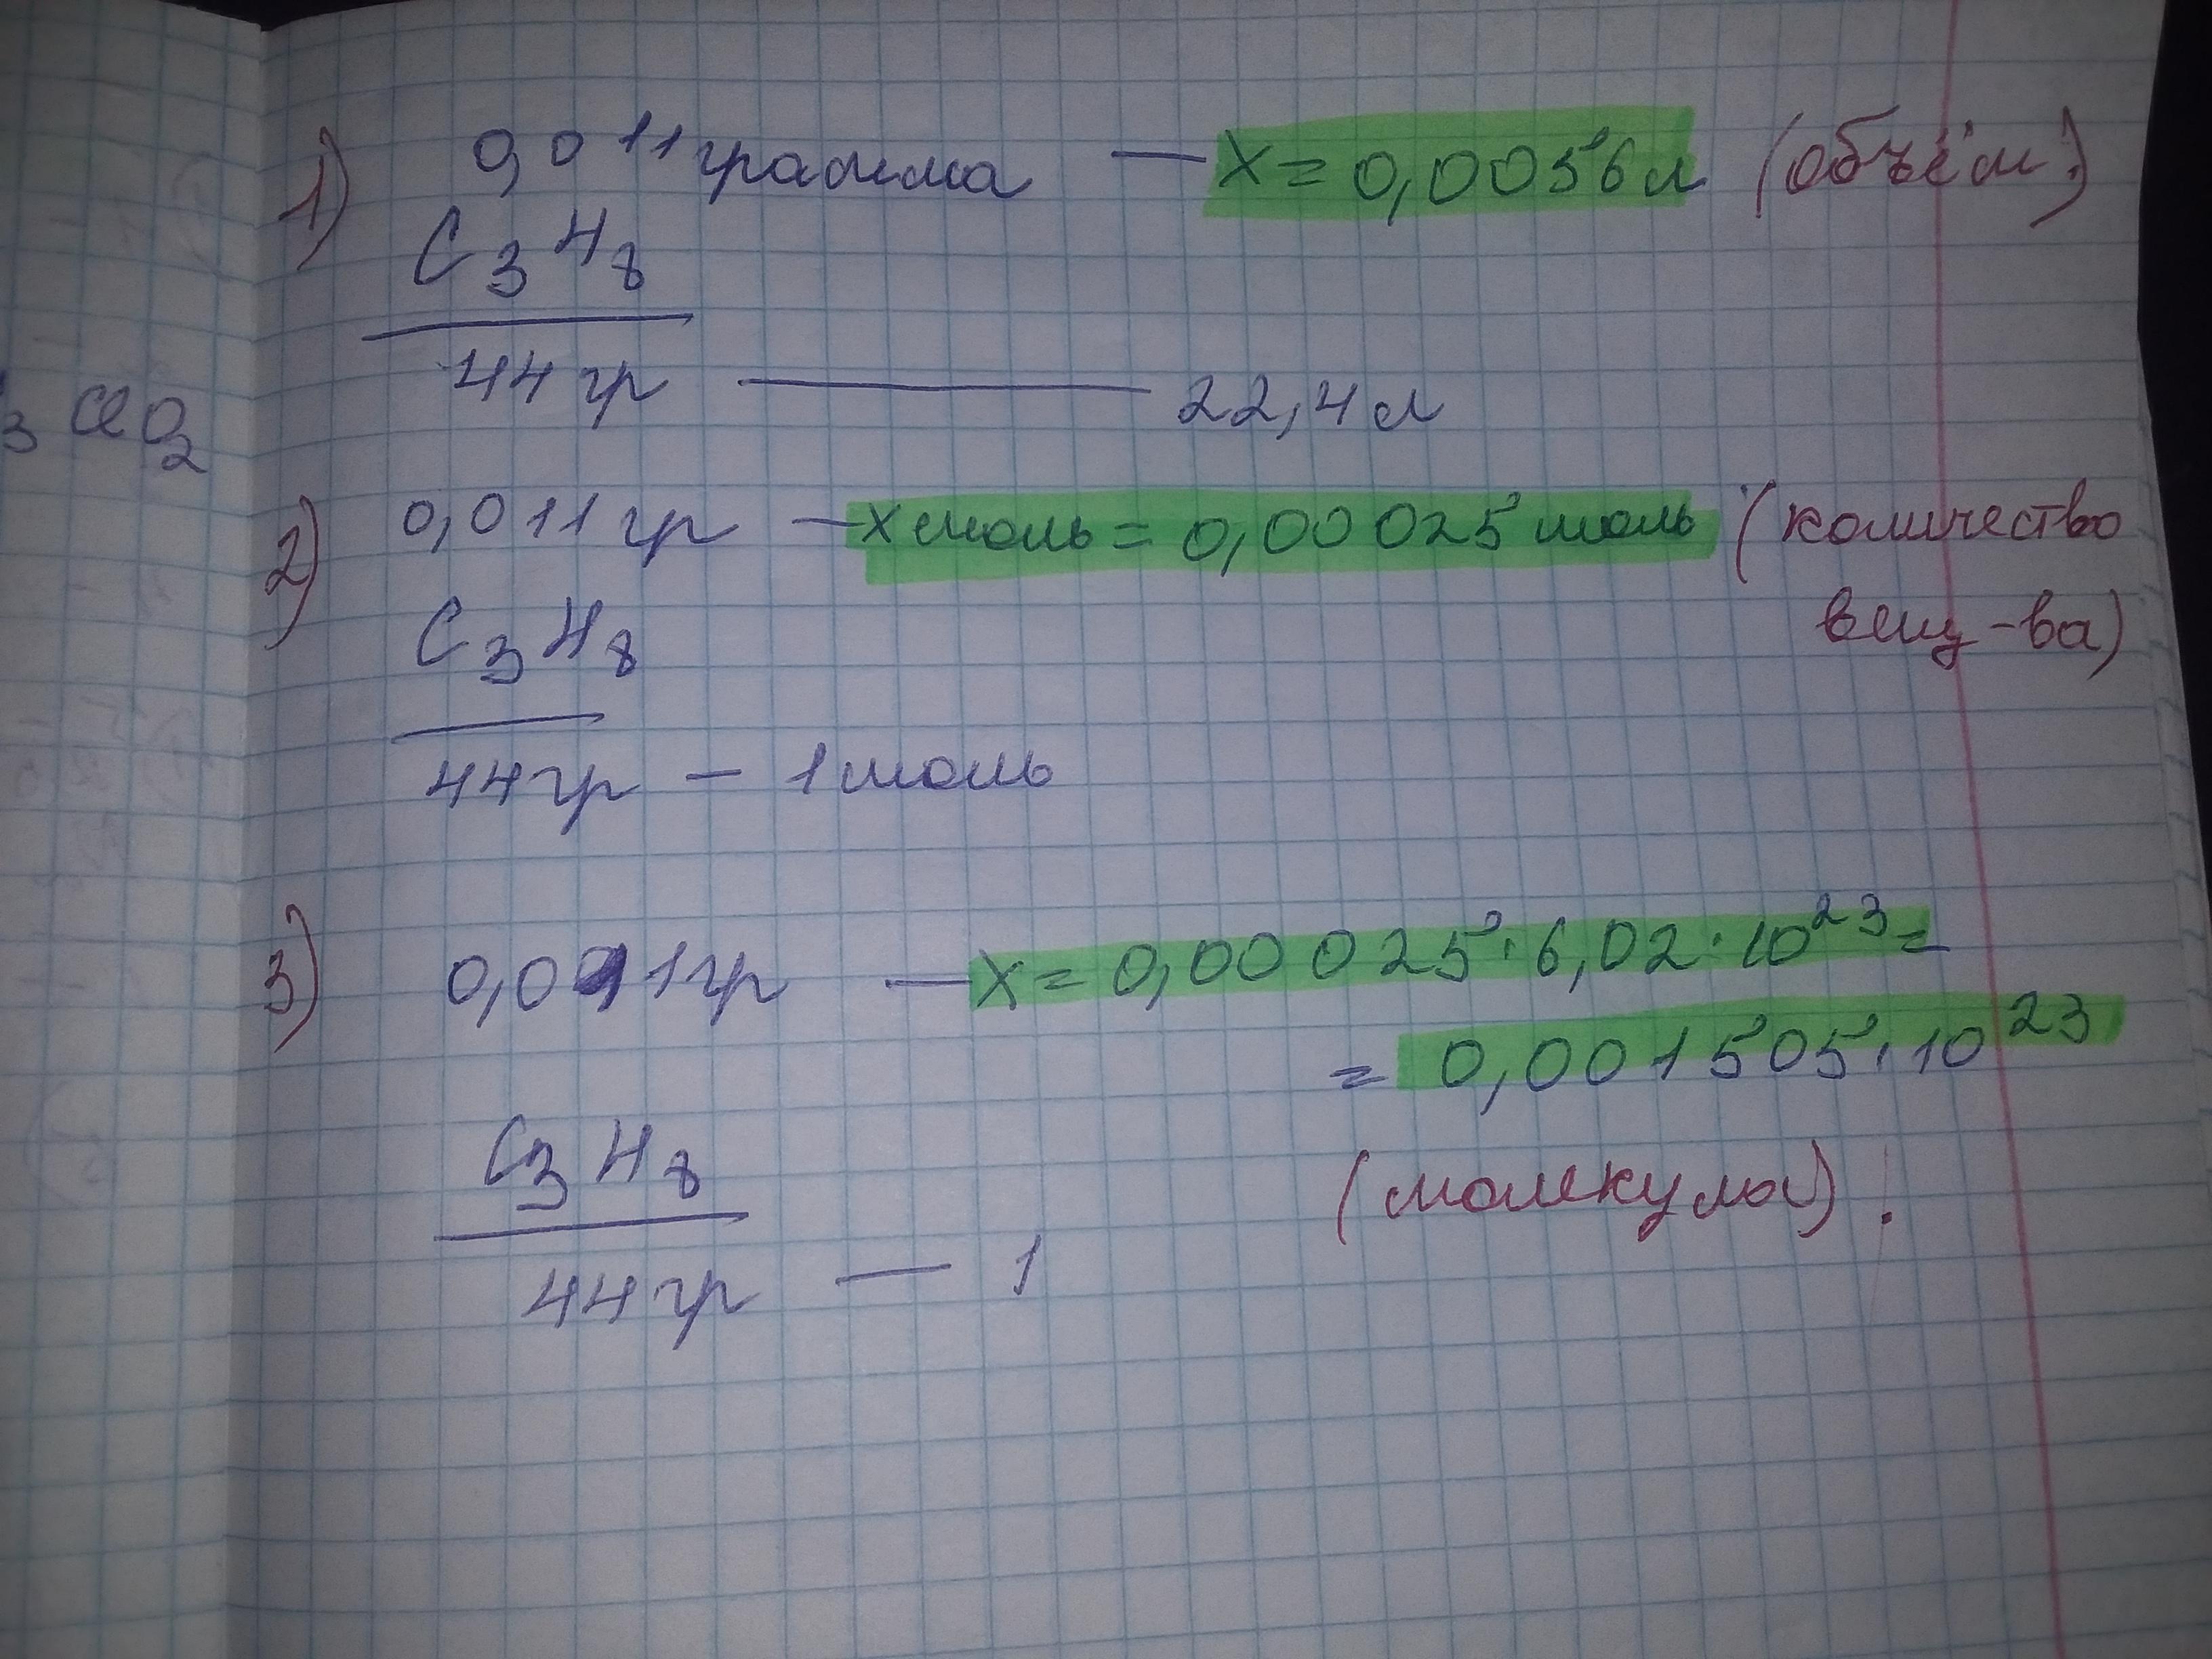 1) 0,011 грамма — X = 0,0056 л (объём)
C3H8
44 гр — 22,4 л
3 ClO2
2) 0,011 гр — X моль = 0,00025 моль (количество
вещ-ва)
C3H8
44 гр — 1 моль
3) 0,011 гр — X = 0,00025 · 6,02 · 10²³ =
= 0,001505 · 10²³
(молекула)
C3H8
44 гр — 1